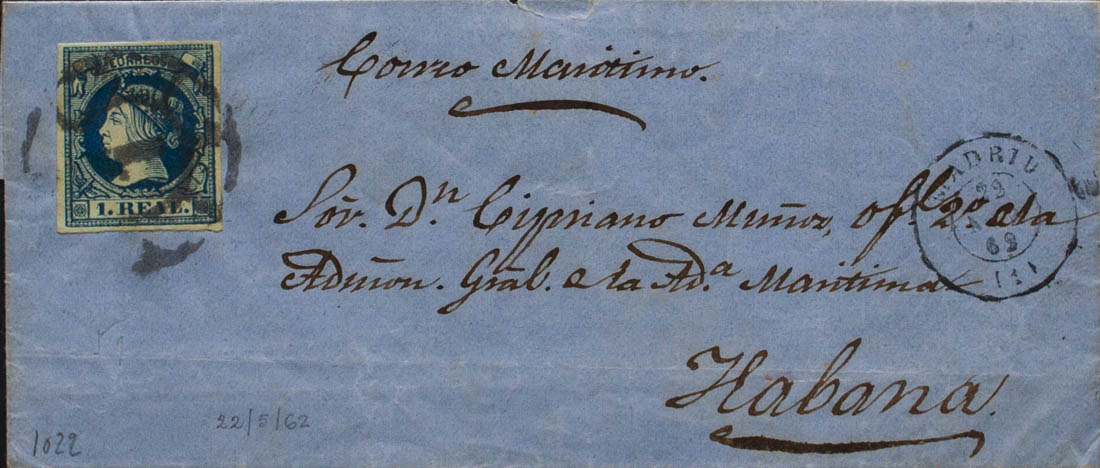 CORREOS
1. REAL.
Correo Maritimo.
Sór. Dn. Cipriano Muñoz, ofl. 2º de la
Admon. Gral. de la Ada. Maritima
Habana.
MADRID
22
62
(1)
22/5/62
1022